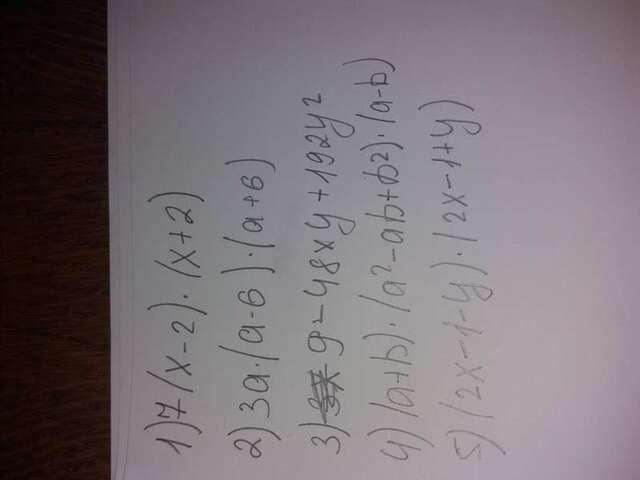 1) 7(x-2)·(x+2)
2) 3a·(a-6)·(a+6)
3) 9-48xy+192y²
4) (a+b)·(a²-ab+b²)·(a-b)
5) (2x-1-y)·(2x-1+y)